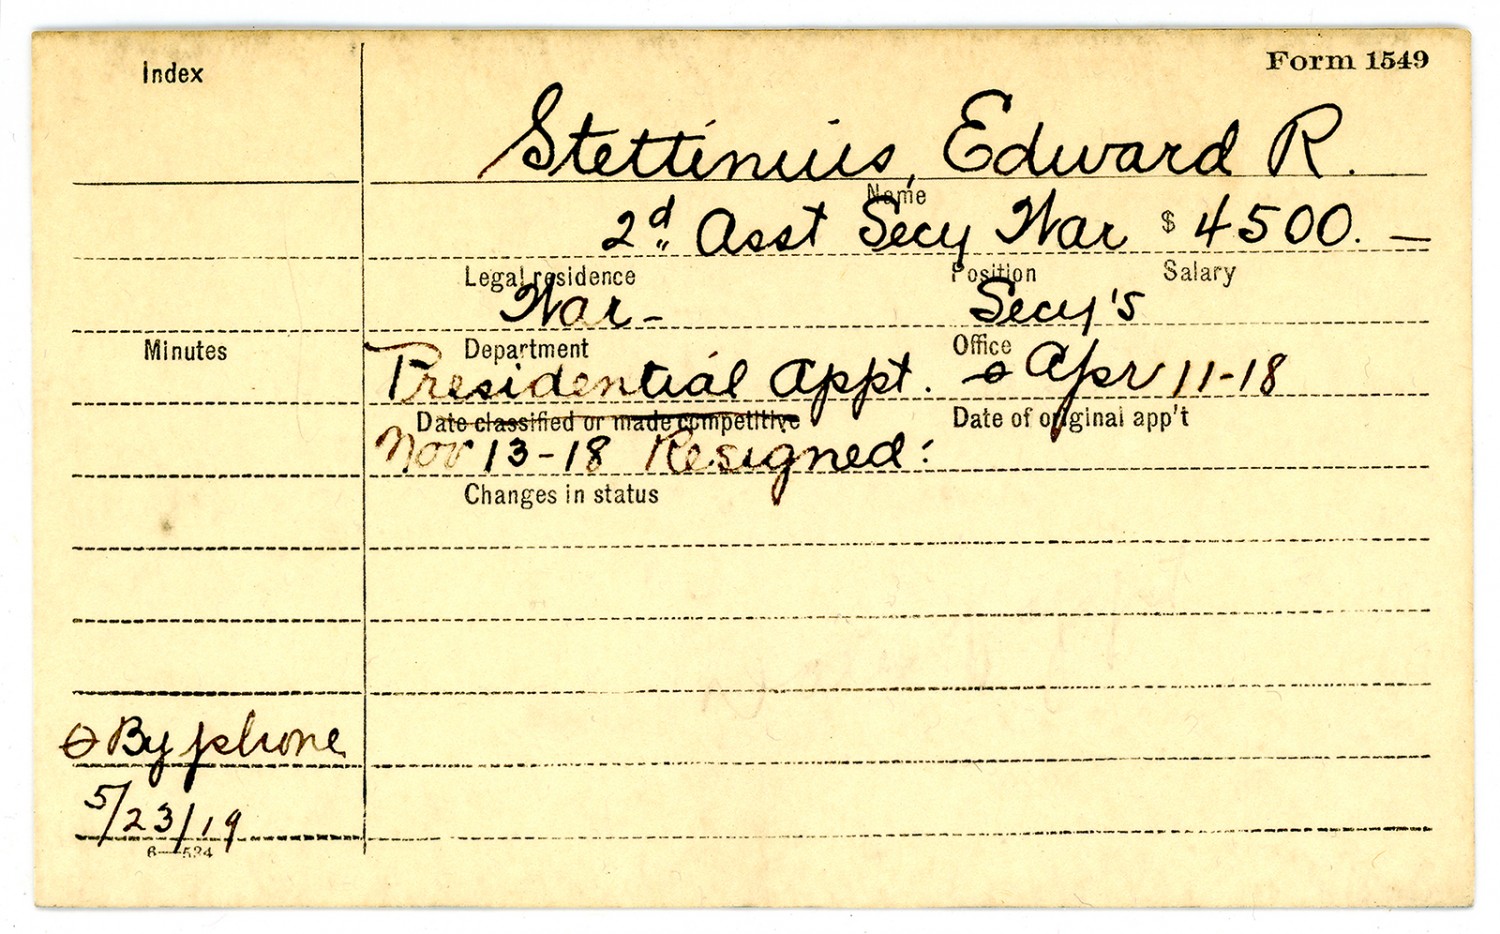 Index
Form 1549
Stettinius, Edward R.
Name
2d Asst Secy War $ 4500. —
Legal residence Position Salary
War - Secy's
Minutes Department Office
Presidential Appt. ⊖ Apr 11-18
Date classified or made competitive Date of original app't
Nov 13-18 Resigned:
Changes in status
⊖ By phone
5/23/19
6—524